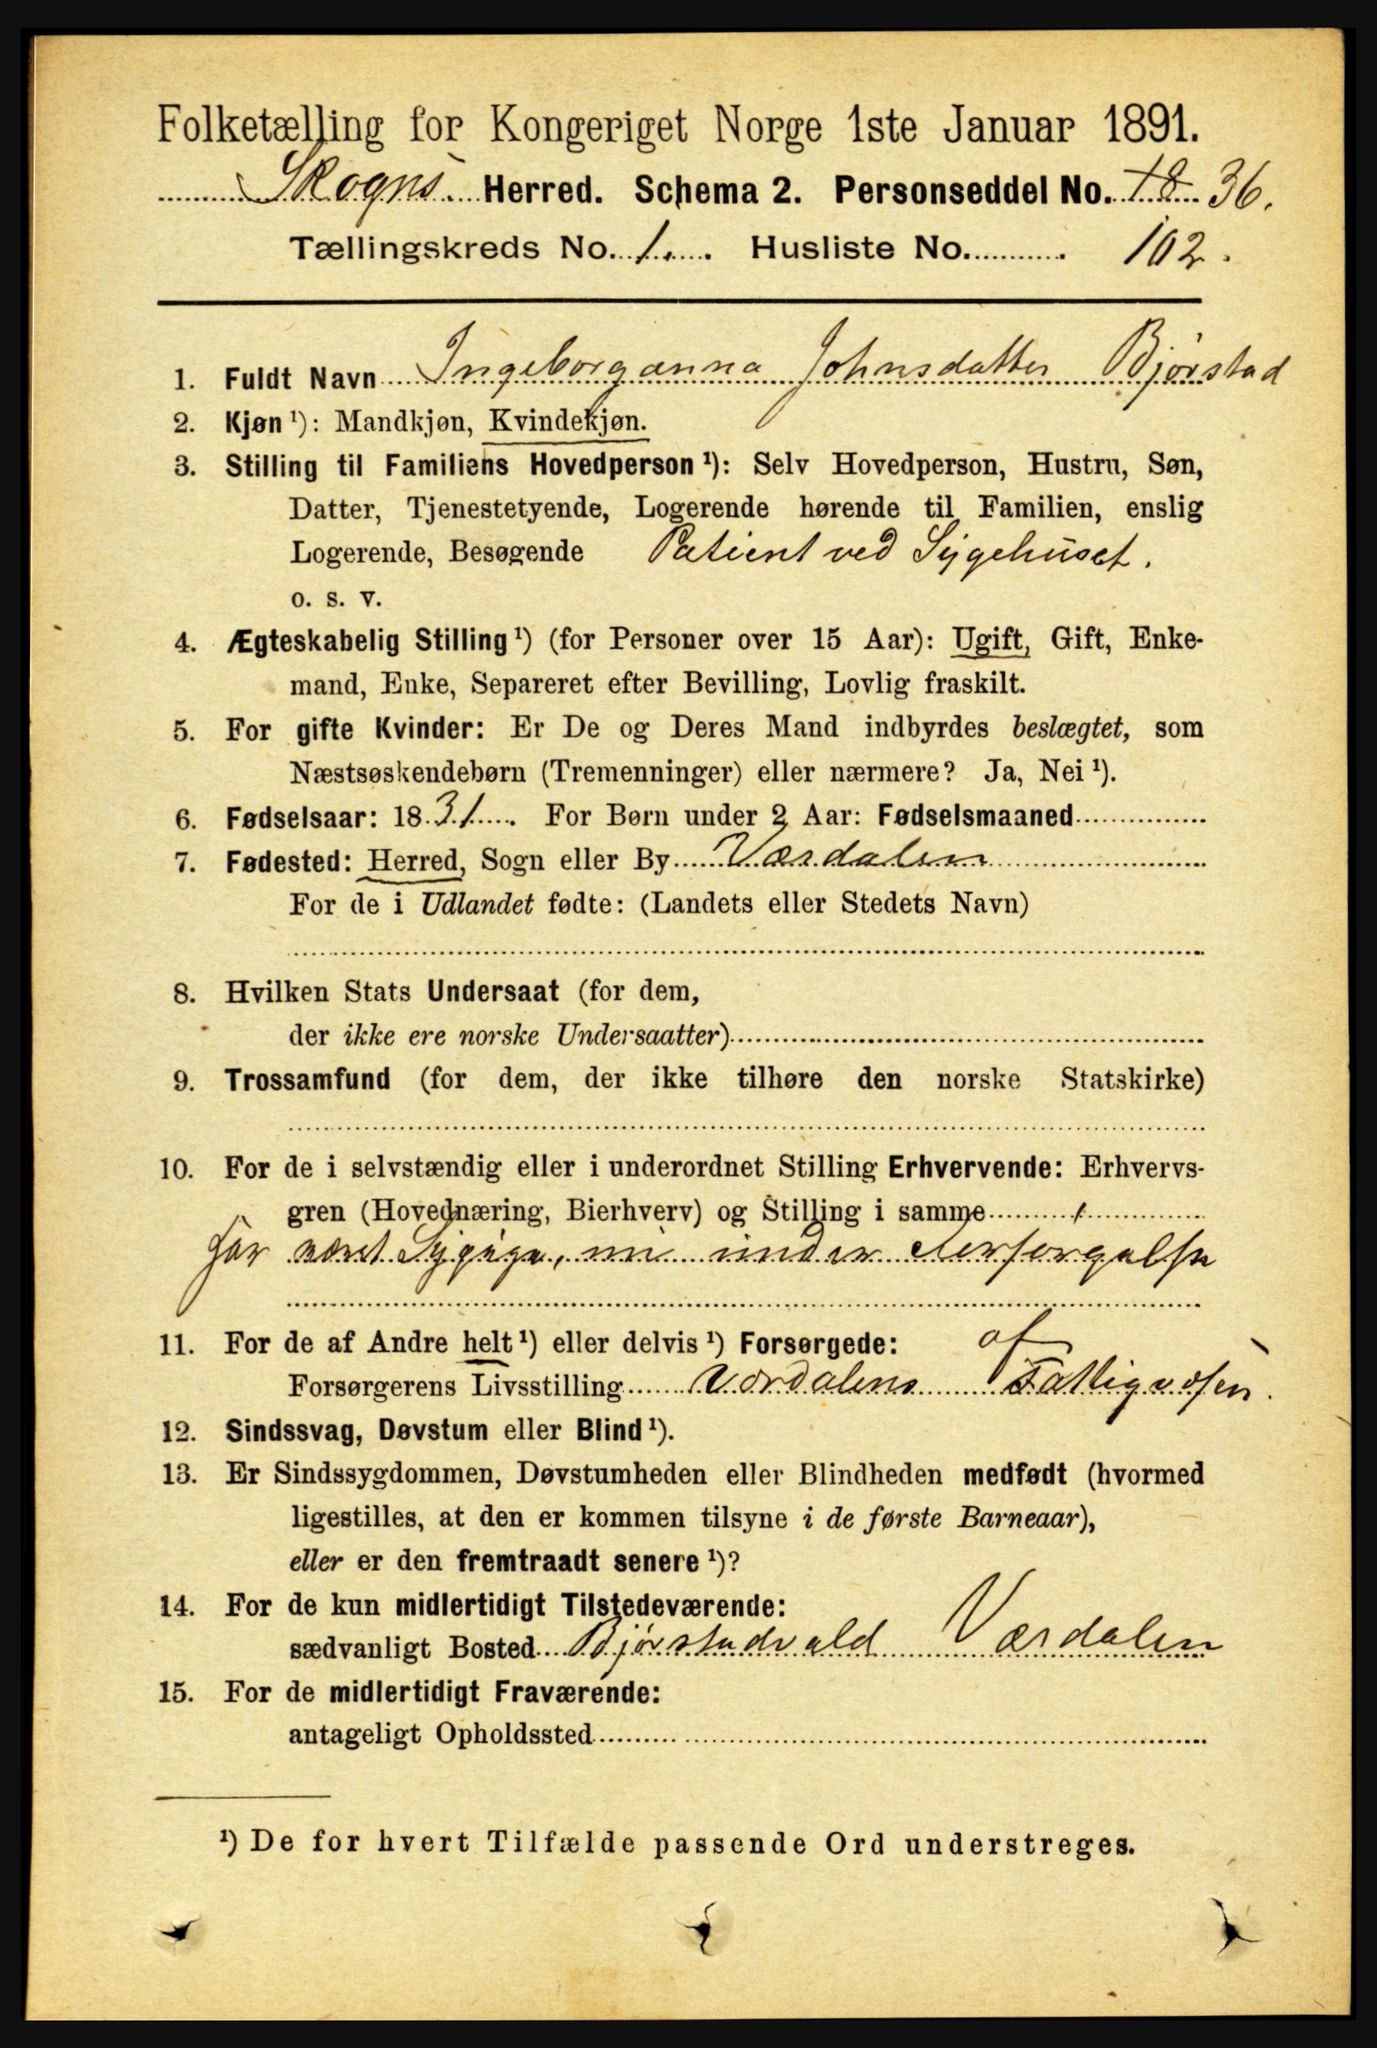 Folketælling for Kongeriget Norge 1ste Januar 1891.
Skogns Herred. Schema 2. Personseddel No. 18 36.
Tællingskreds No. 1. Husliste No. 102.
1. Fuldt Navn Ingeborganna Johnsdatter Bjørstad
2. Kjøn ¹): Mandkjøn, Kvindekjøn.
3. Stilling til Familiens Hovedperson ¹): Selv Hovedperson, Hustru, Søn,
Datter, Tjenestetyende, Logerende hørende til Familien, enslig
Logerende, Besøgende Patient ved Sygehuset.
o. s. v.
4. Ægteskabelig Stilling ¹) (for Personer over 15 Aar): Ugift, Gift, Enke-
mand, Enke, Separeret efter Bevilling, Lovlig fraskilt.
5. For gifte Kvinder: Er De og Deres Mand indbyrdes beslægtet, som
Næstsøskendebørn (Tremenninger) eller nærmere? Ja, Nei ¹).
6. Fødselsaar: 1831. For Børn under 2 Aar: Fødselsmaaned
7. Fødested: Herred, Sogn eller By Værdalen
For de i Udlandet fødte: (Landets eller Stedets Navn)
8. Hvilken Stats Undersaat (for dem,
der ikke ere norske Undersaatter)
9. Trossamfund (for dem, der ikke tilhøre den norske Statskirke)
10. For de i selvstændig eller i underordnet Stilling Erhvervende: Erhvervs-
gren (Hovednæring, Bierhverv) og Stilling i samme
har været nu under Forsørgelse
11. For de af Andre helt ¹) eller delvis ¹) Forsørgede: af
Forsørgerens Livsstilling Værdalens Fattigvæsen.
12. Sindssvag, Døvstum eller Blind ¹).
13. Er Sindssygdommen, Døvstumheden eller Blindheden medfødt (hvormed
ligestilles, at den er kommen tilsyne i de første Barneaar),
eller er den fremtraadt senere ¹)?
14. For de kun midlertidigt Tilstedeværende:
sædvanligt Bosted Bjørstadvald Værdalen
15. For de midlertidigt Fraværende:
antageligt Opholdssted
¹) De for hvert Tilfælde passende Ord understreges.